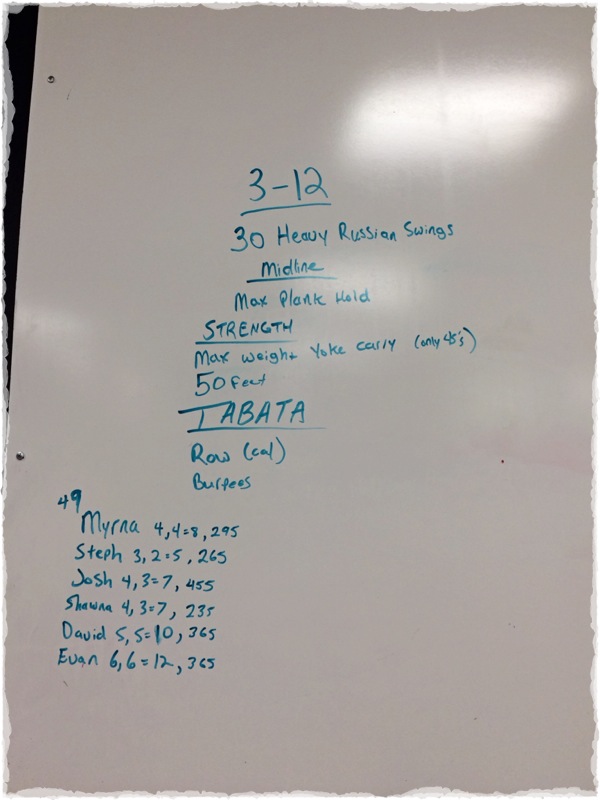 3-12
30 Heavy Russian Swings
Midline
Max Plank Hold
STRENGTH
Max weight Yoke carry (only 45's)
50 Feet
TABATA
Row (cal)
Burpees
49
Myrna 4,4=8, 295
Steph 3,2=5, 265
Josh 4,3=7, 455
Shawna 4,3=7, 235
David 5,5=10, 365
Evan 6,6=12, 365